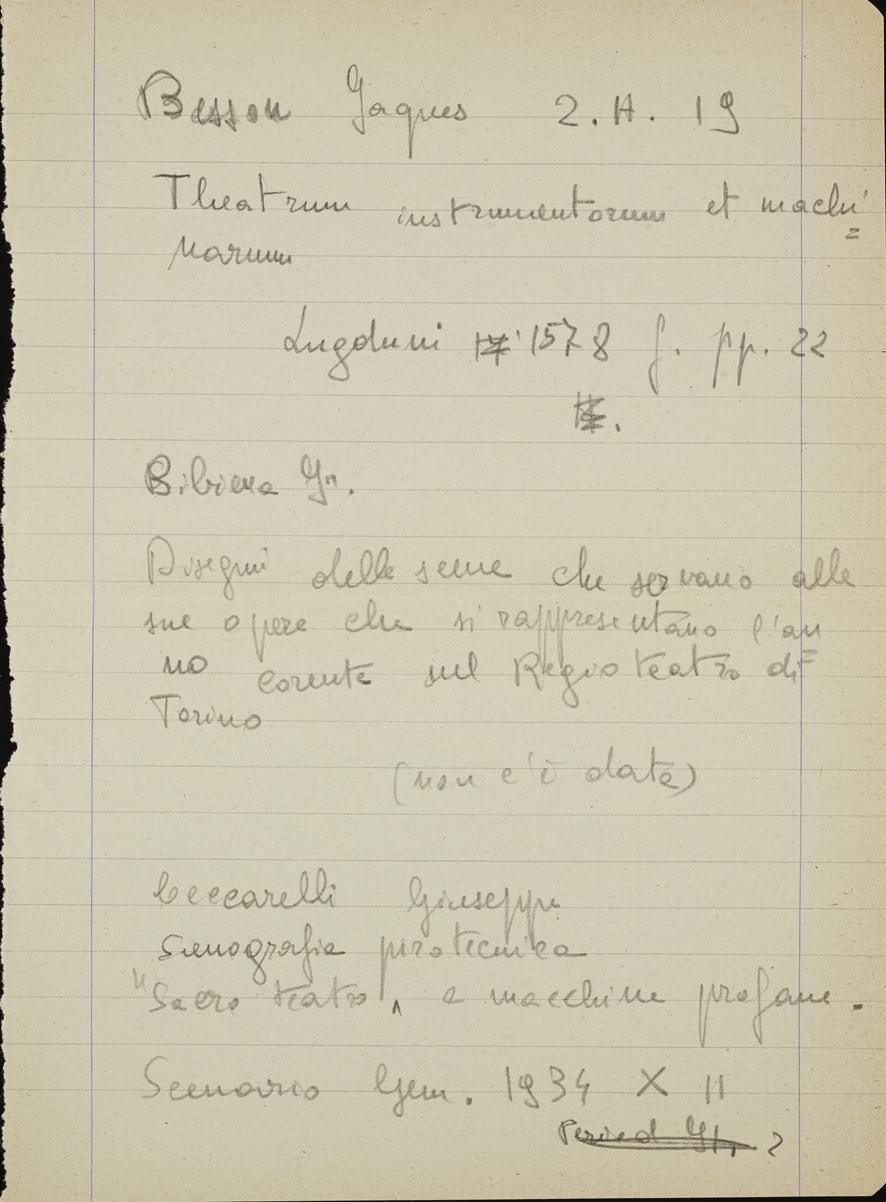 Besson Jaques 2. H. 19
Theatrum instrumentorum et machi=
narum
Lugduni 1578 f. pp. 22
Bibiena G.
Disegni delle scene che servano alle
sue opere che si rappresentano l'an=
no corente sul Regio teatro di
Torino
(non c'è data)
Ceccarelli Giuseppe
Scenografia pirotecnica
"Sacro teatro, e macchine profane.
Scenario Gen. 1934 X II
Period 2